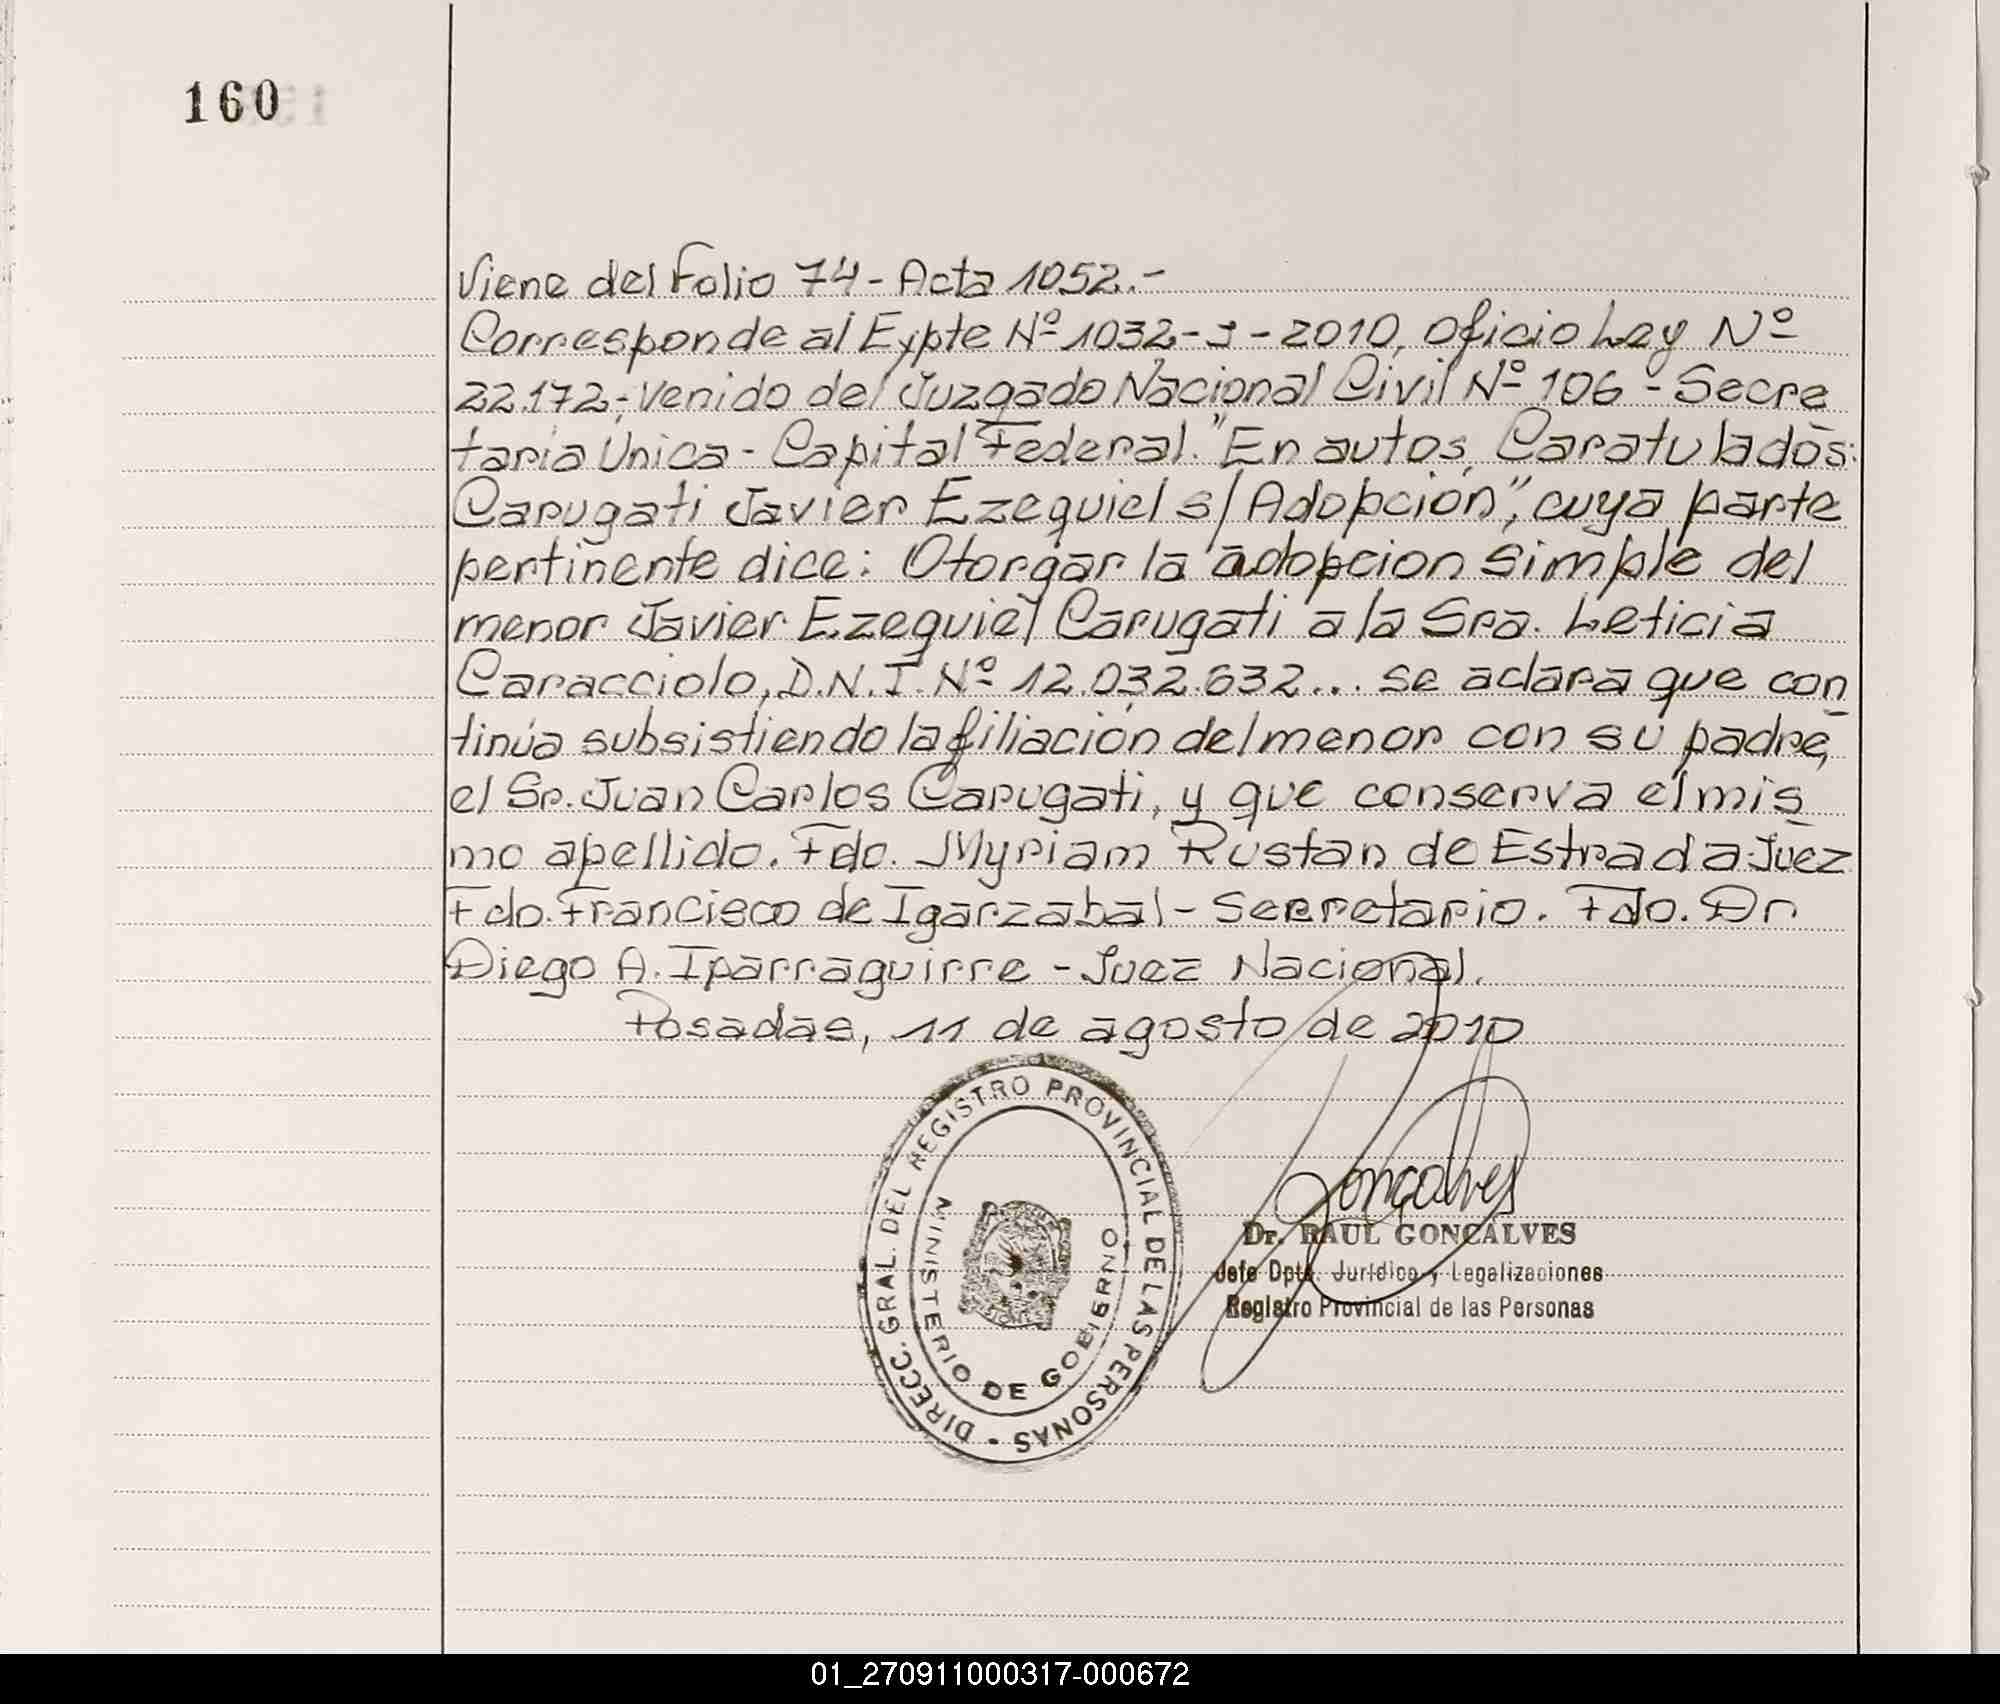 160
Viene del Folio 74 - Acta 1052.-
Corresponde al Expte Nº 1032-J-2010, Oficio Ley Nº
22.172-, venido del Juzgado Nacional Civil Nº 106 - Secre
taria Unica - Capital Federal. "En autos, Caratulados:
Carugati Javier Ezequiel s/ Adopción", cuya parte
pertinente dice: Otorgar la adopcion simple del
menor Javier Ezequiel Carugati a la Sra. Leticia
Caracciolo, D.N.I. Nº 12.032.632... se aclara que con
tinúa subsistiendo la filiación del menor con su padre,
el Sr. Juan Carlos Carugati, y que conserva el mis
mo apellido. Fdo. Myriam Rustan de Estrada. Juez
Fdo. Francisco de Igarzabal - Secretario. Fdo. Dr
Diego A. Iparraguirre - Juez Nacional.
Posadas, 11 de agosto de 2010
DIRECC. GRAL. DEL REGISTRO PROVINCIAL DE LAS PERSONAS -
MINISTERIO DE GOBIERNO
Goncalves
Dr. RAUL GONCALVES
Jefe Dpto. Jurídico y Legalizaciones
Registro Provincial de las Personas
01_270911000317-000672